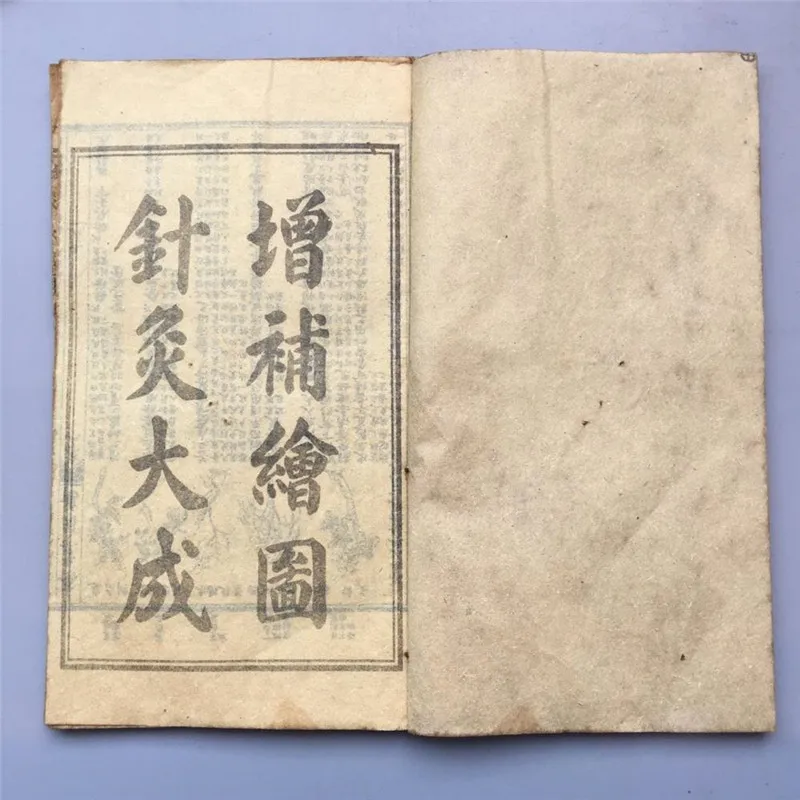 增補繪圖
針灸大成